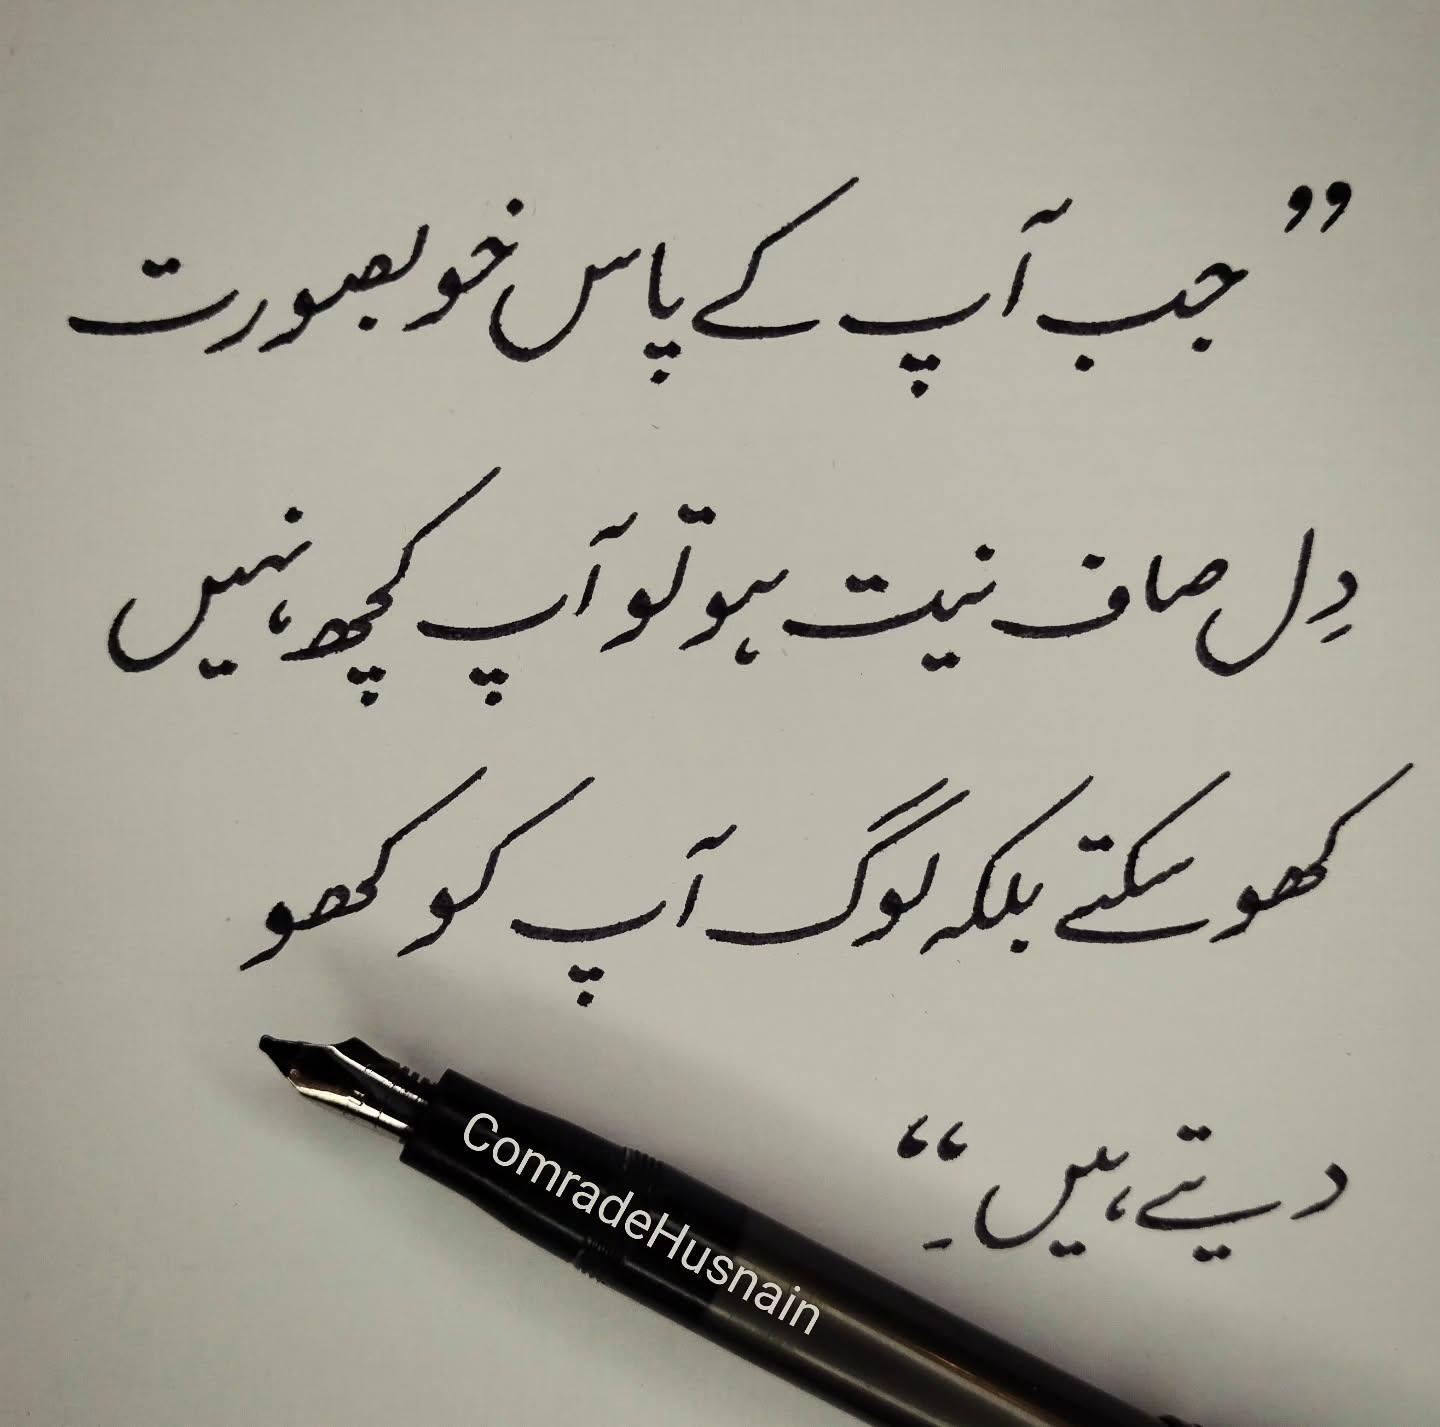 ”جب آپ کے پاس خوبصورت
دِل صاف نیت ہو تو آپ کچھ نہیں
کھو سکتے بلکہ لوگ آپ کو کھو
دیتے ہیں ۔“
ComradeHusnain